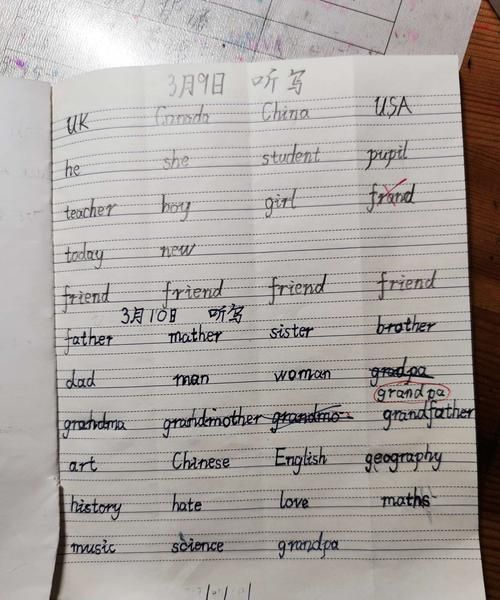 3月9日 听写
UK Canada China USA
he she student pupil
teacher boy girl frand
today new
friend friend friend friend
3月10日 听写
father mather sister brother
dad man woman gradpa
grandpa
grandma grandmother grandmo grandfather
art Chinese English geography
history hate love maths
music science grandpa